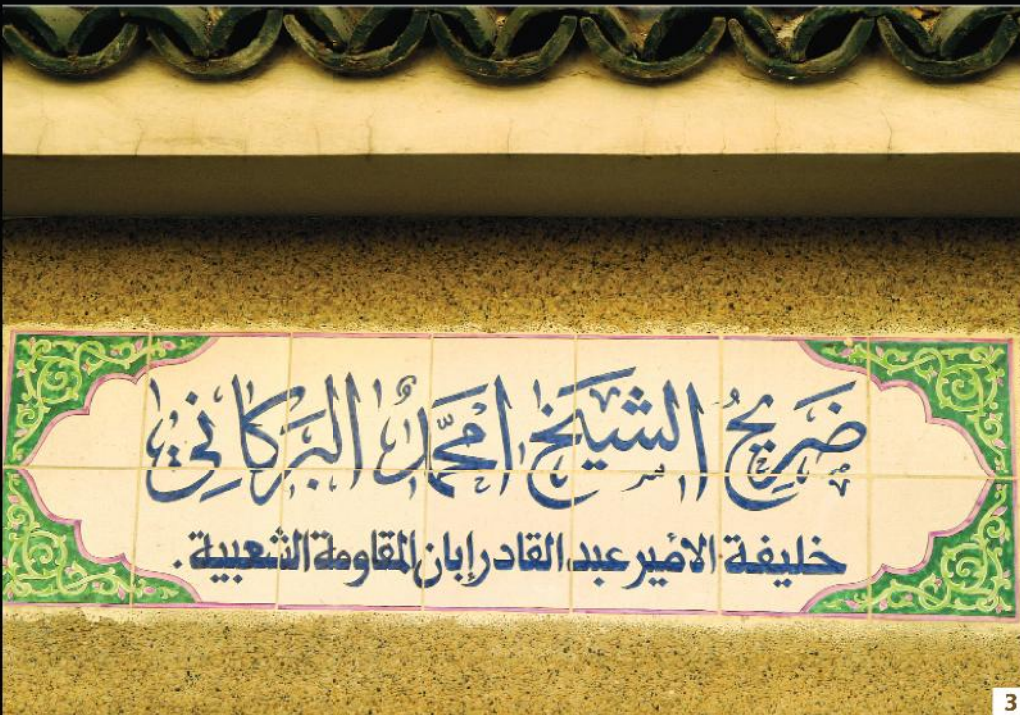 ضَرِيحُ الشَّيْخِ امْحَمَّدُ البَرْكَانِي
خليفة الأمير عبد القادر إبان المقاومة الشعبية .
3